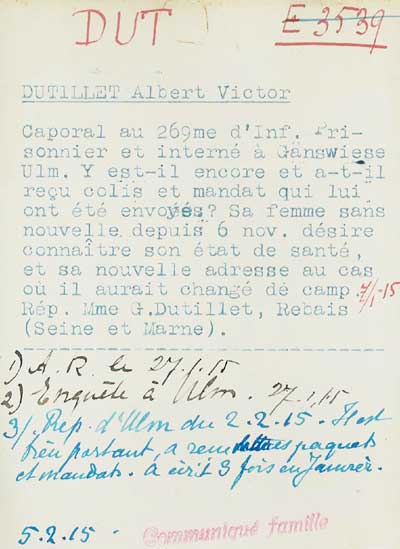 DUT
E 3539
DUTILLET Albert Victor
Caporal au 269me d'Inf. Pri-
sonnier et interné à Gänswiese
Ulm. Y est-il encore et a-t-il
reçu colis et mandat qui lui
ont été envoyés? Sa femme sans
nouvelle depuis 6 nov. désire
connaître son état de santé,
et sa nouvelle adresse au cas
où il aurait changé de camp. 7/1-15
Rép. Mme G.Dutillet, Rebais
(Seine et Marne).
1) A. R. le 27.1.15
2) Enquête à Ulm. 27.1.15
3/. Rep. d'Ulm du 2.2.15. Il est
bien portant, a paquets
et mandats. a écrit 3 fois en Janvier.
5.2.15 -
Communiqué famille